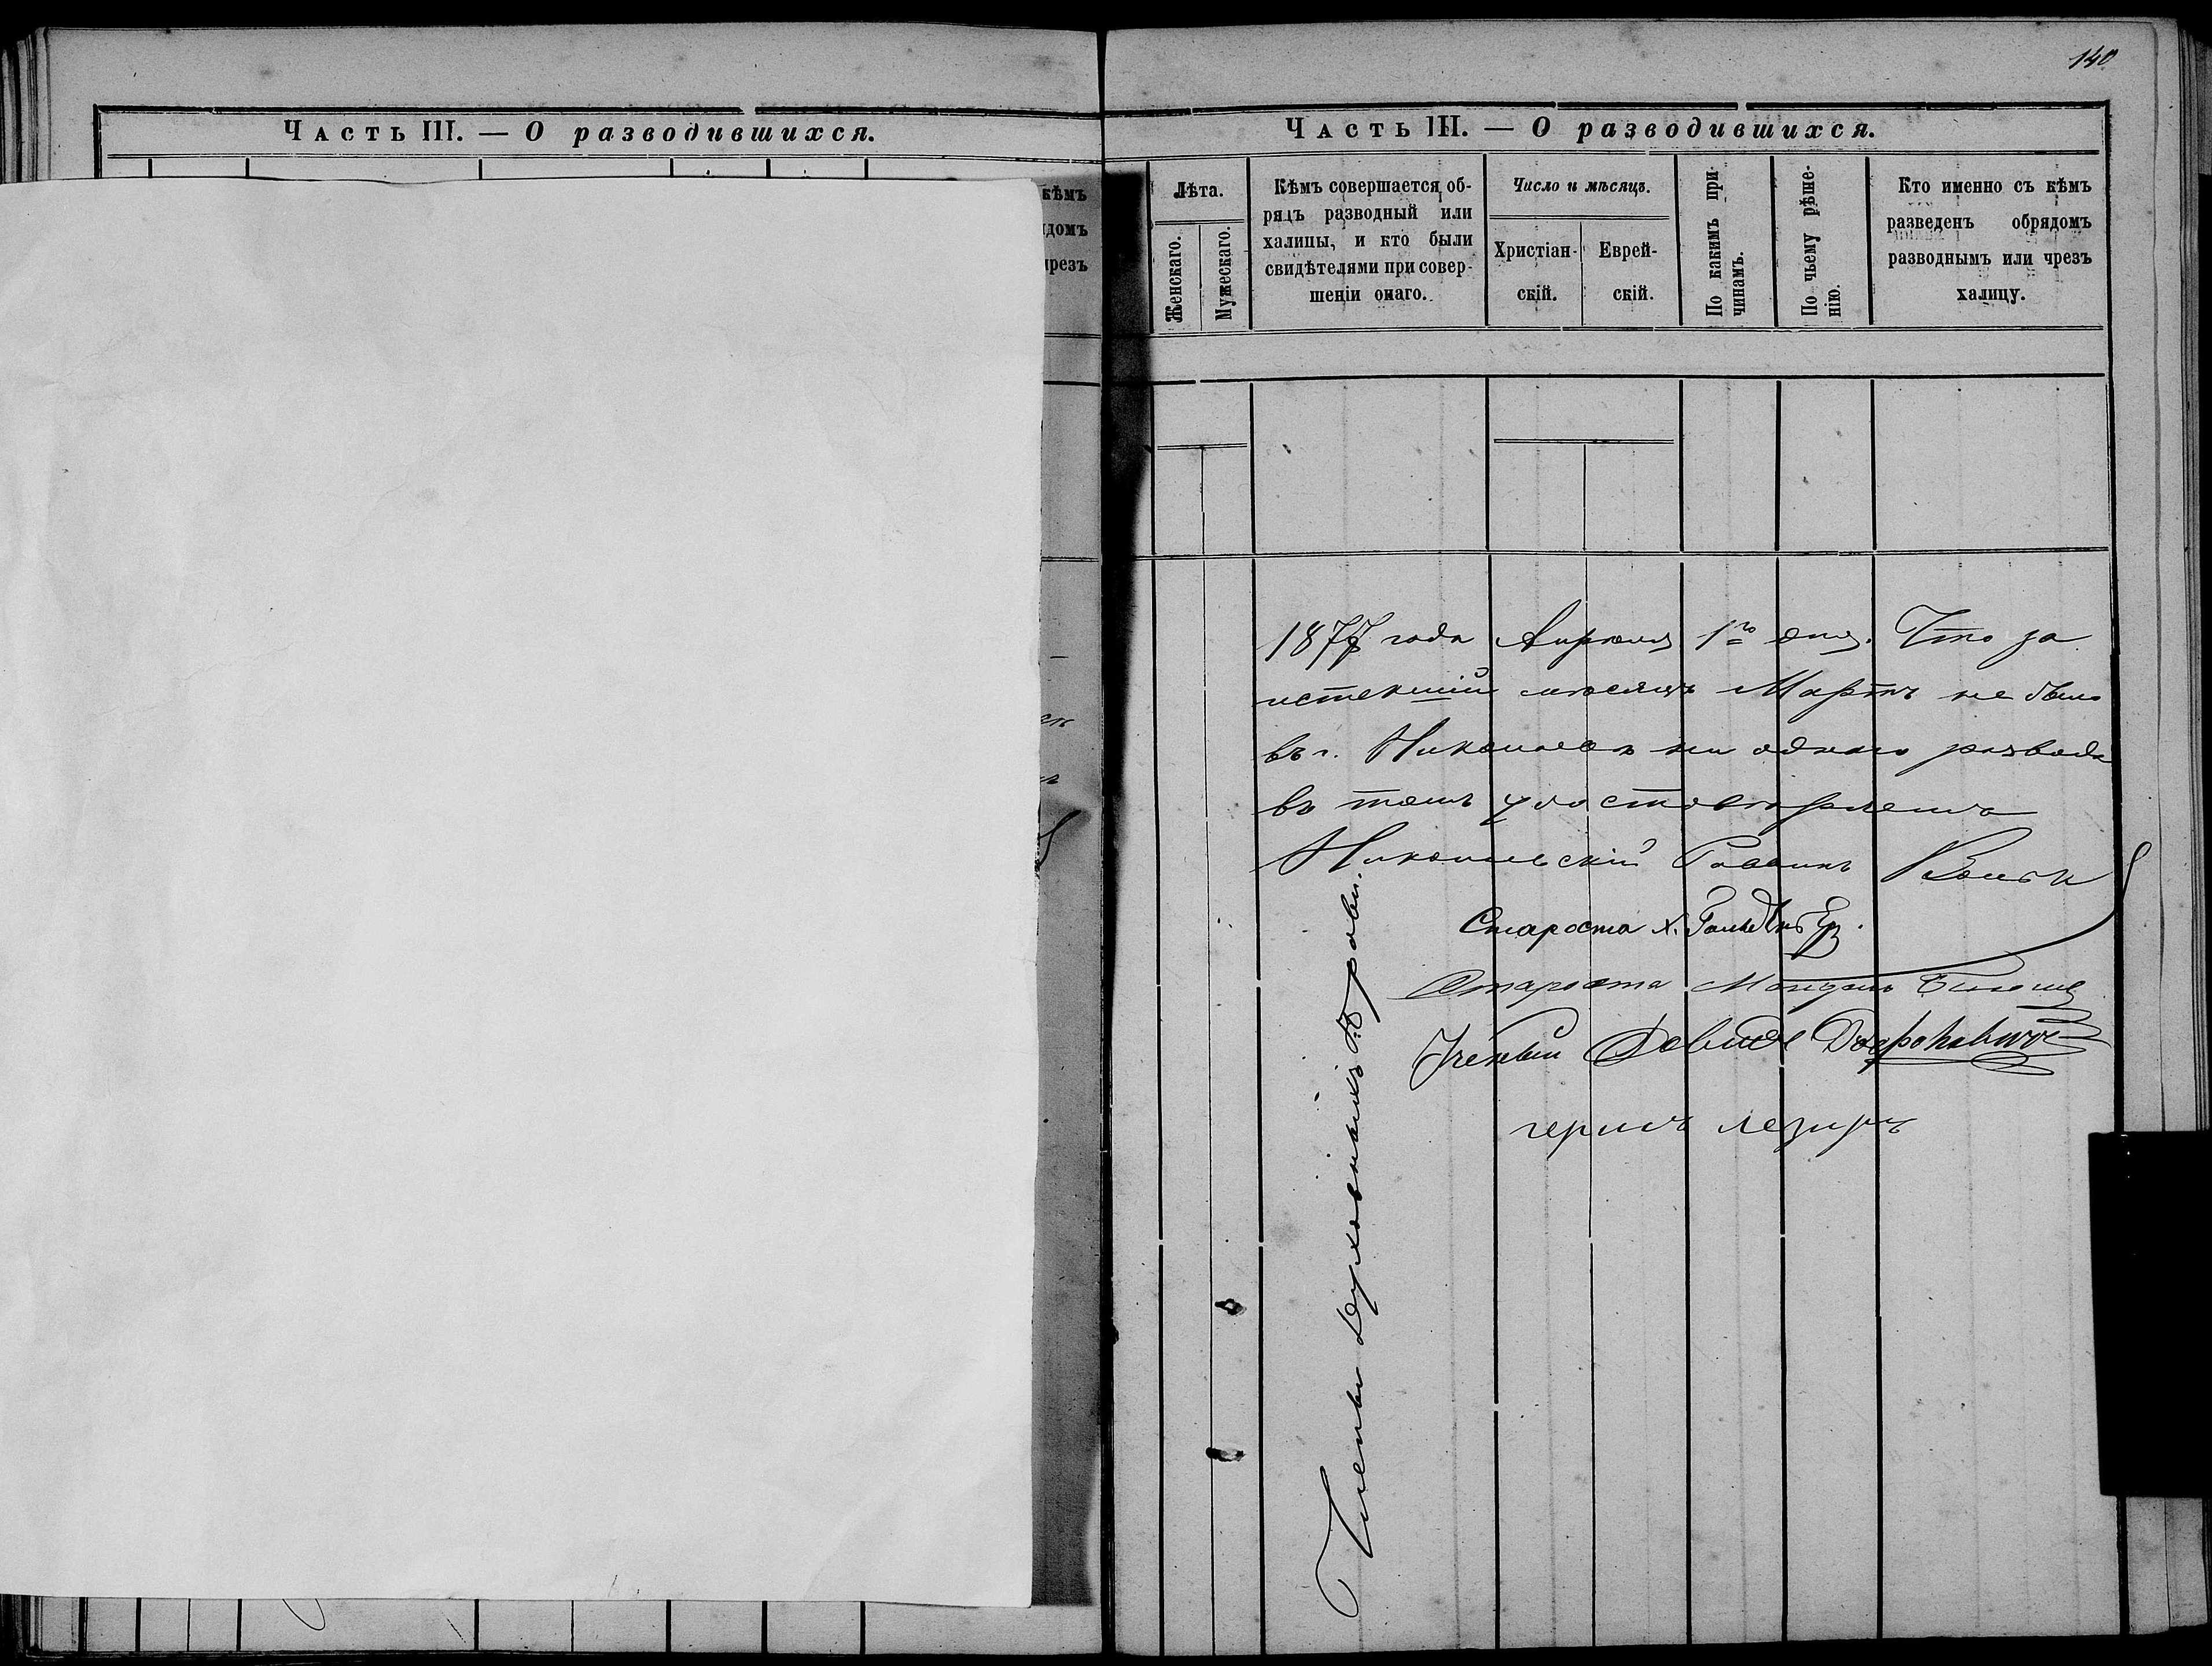 140
Часть III. — О разводившихся.
кѣмъ
домъ
чрезъ
Часть III. — О разводившихся.
Лѣта.
Женскаго.
Мужескаго.
Кѣмъ совершается об-
рядъ разводный или
халицы, и кто были
свидѣтелями при совер-
шеніи онаго.
Число и мѣсяцъ.
Христіан-
скій.
Еврей-
скій.
По какимъ при-
чинамъ.
По чьему рѣше-
нію.
Кто именно съ кѣмъ
разведенъ обрядомъ
разводнымъ или чрезъ
халицу.
1877 года Апрѣля 1го дня. Что за
истекшій мѣсяцъ Мартъ не было
въ г. Николаевѣ ни одного развода
въ томъ удостовѣряемъ
Николаевскій Раввинъ
Староста Х.
Староста
Ученый Давидъ
Члены духовнаго Правл.